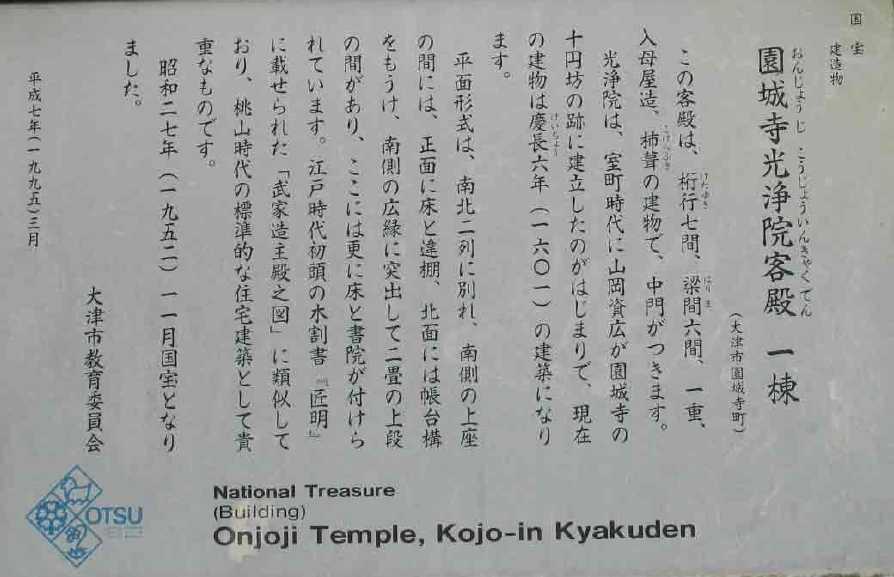 国宝
建造物
園城寺光浄院客殿 一棟
おんじょうじ こうじょういんきゃくでん
(大津市園城寺町)
この客殿は、桁行七間、梁間六間、一重、
けたゆき はりま
入母屋造、杮葺の建物で、中門がつきます。
こけらぶき
光浄院は、室町時代に山岡資広が園城寺の
十円坊の跡に建立したのがはじまりで、現在
の建物は慶長六年(一六〇一)の建築になり
けいちょう
ます。
平面形式は、南北二列に別れ、南側の上座
の間には、正面に床と違棚、北面には帳台構
をもうけ、南側の広縁に突出して二畳の上段
の間があり、ここには更に床と書院が付けら
れています。江戸時代初頭の木割書『匠明』
に載せられた「武家造主殿之図」に類似して
おり、桃山時代の標準的な住宅建築として貴
重なものです。
昭和二七年(一九五二)一一月国宝となり
ました。
平成七年(一九九五)三月
大津市教育委員会
OTSU
National Treasure
(Building)
Onjoji Temple, Kojo-in Kyakuden